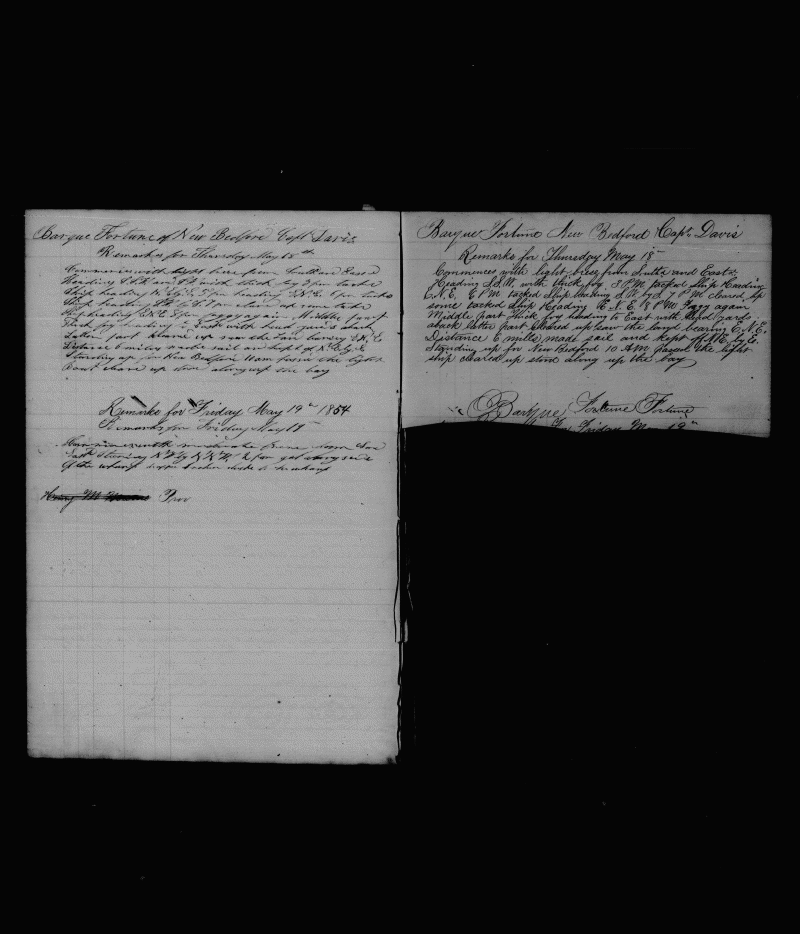 Barque Fortune of New Bedford Capt Davis
Remarks for Thursday May 18th
Commences with light bree from South and East
Heading S S W and S W with thick fog 3 pm tacked
Ship heading 5 pm heading E N E 6 pm tacks
Ship heading S W by S 7 pm some tacked
Ship heading E N E 8 pm foggy again Middle part
Thick fog heading to East with head yards aback
Latter part cleared up saw the Lan bearing E N E
Distance 6 miles made sail and kept of N E by E
Standing up for New Bedford 10 am the light
cleared up stood along up the bay
Remarks for Friday May 19th 1854
Remarks for Friday May 19
Commences with breeze from
East Steering N W by N 2 pm got along side
of the wharf
Henry M Proo
Barque Fortune New Bedford Capt. Davis
Remarks for Thursday May 18
Commences with light breez from South and East:
Heading S.S.W. with thick fog 3 P.M. tacked ship Heading
E.N.E. 6 P.M. tacked ship heading S W by S 7 P M cleared up
some tacked ship Heading E. N. E 8 P M Fogg again
Middle part thick fog heading to East with Head yards
aback latter part cleared up saw the land bearing E. N. E.
Distance 6 mills, made sail and kept of N.E. by E.
Standing up for New Bedford 10 A.M. pased the light
ship cleared up stood along up the bay
Barque Fortune Fortune
for Friday May 19th